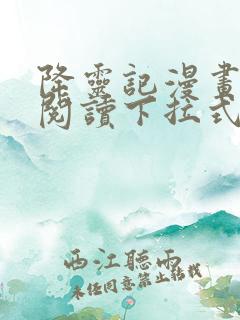 降靈記漫畫
閱讀下拉式
西江聽雨
未經同意禁止轉載